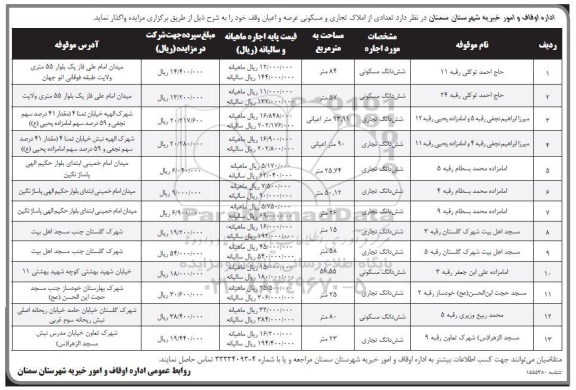 اداره اوقاف و امور خیریه شهرستان سمنان در نظر دارد تعدادی از املاک تجاری و مسکونی عرصه و اعیان وقف خود را به شرح ذیل از طریق برگزاری مزایده واگذار نماید.
ردیف | نام موقوفه | مشخصات مورد اجاره | مساحت به مترمربع | قیمت پایه اجاره ماهیانه و سالیانه (ریال) | مبلغ سپرده جهت شرکت در مزایده (ریال) | آدرس موقوفه
۱ | حاج احمد توکلی رقبه ۱۱ | شش‌دانگ مسکونی | ۸۴ متر | ۱۲/۰۰۰/۰۰۰ ریال ماهیانه ۱۴۴/۰۰۰/۰۰۰ ریال سالیانه | ۱۴/۴۰۰/۰۰۰ ریال | میدان امام علی فاز یک بلوار ۵۵ متری ولایت طبقه فوقانی اتو جهان
۲ | حاج احمد توکلی رقبه ۲۴ | شش‌دانگ مسکونی | ۵۷ متر | ۱۱/۰۰۰/۰۰۰ ریال ماهیانه ۱۳۲/۰۰۰/۰۰۰ ریال سالیانه | ۱۳/۲۰۰/۰۰۰ ریال | میدان امام علی فاز یک بلوار ۵۵ متری ولایت
۳ | میرزا ابراهیم نجفی رقبه ۵ و امامزاده یحیی رقبه ۱۲ | شش‌دانگ تجاری | ۹۳,۹۱ متر اعیانی | ۱۶/۸۴۸/۰۰۰ ریال ماهیانه ۲۰۲/۱۷۶/۰۰۰ ریال سالیانه | ۲۰/۲۱۷/۶۰۰ ریال | شهرک الهیه خیابان تمنا ۴ (مقدار ۴۱ درصد سهم نجفی و ۵۹ درصد سهم امامزاده یحیی (ع))
۴ | میرزا ابراهیم نجفی رقبه ۴ و امامزاده یحیی رقبه ۱۱ | شش‌دانگ تجاری | ۹۰ متر اعیانی | ۱۶/۹۰۰/۰۰۰ ریال ماهیانه ۲۰۲/۸۰۰/۰۰۰ ریال سالیانه | ۲۰/۲۸۰/۰۰۰ ریال | شهرک الهیه نبش خیابان تمنا ۴ (مقدار ۴۱ درصد سهم نجفی و ۵۹ درصد سهم امامزاده یحیی (ع))
۵ | امامزاده محمد بسطام رقبه ۵ | شش‌دانگ تجاری | ۲۵,۷۴ متر | ۵/۱۷۰/۰۰۰ ریال ماهیانه ۶۲/۰۴۰/۰۰۰ ریال سالیانه | میدان امام خمینی ابتدای بلوار حکیم الهی پاساژ نگین
۶ | امامزاده محمد بسطام رقبه ۴ | شش‌دانگ تجاری | ۵۰,۱۲ متر | ۷/۵۰۰/۰۰۰ ریال ماهیانه ۹۰/۰۰۰/۰۰۰ ریال سالیانه | ۹/۰۰۰/۰۰۰ ریال | میدان امام خمینی ابتدای بلوار حکیم الهی پاساژ نگین
۷ | امامزاده محمد بسطام رقبه ۹ | شش‌دانگ تجاری | ۲۶ متر | ۵/۷۵۰/۰۰۰ ریال ماهیانه ۶۹/۰۰۰/۰۰۰ ریال سالیانه | ۶/۹۰۰/۰۰۰ ریال | میدان امام خمینی ابتدای بلوار حکیم الهی پاساژ نگین
۸ | مسجد اهل بیت شهرک گلستان رقبه ۳ | شش‌دانگ تجاری | ۱۵ متر | ۱۶/۰۰۰/۰۰۰ ریال ماهیانه ۱۹۲/۰۰۰/۰۰۰ ریال سالیانه | ۱۹/۲۰۰/۰۰۰ ریال | شهرک گلستان جنب مسجد اهل بیت
۹ | مسجد اهل بیت شهرک گلستان رقبه ۵ | شش‌دانگ تجاری | ۵۸ متر | ۴۵/۰۰۰/۰۰۰ ریال ماهیانه ۵۴۰/۰۰۰/۰۰۰ ریال سالیانه | ۵۴/۰۰۰/۰۰۰ ریال | شهرک گلستان جنب مسجد اهل بیت
۱۰ | امامزاده علی ابن جعفر رقبه ۳ | شش‌دانگ مسکونی | ۵۶,۵۵ | ۱۵/۰۰۰/۰۰۰ ریال ماهیانه ۱۸۰/۰۰۰/۰۰۰ ریال سالیانه | ۱۸/۰۰۰/۰۰۰ ریال | خیابان شهید بهشتی کوچه شهید بهشتی ۱۱
۱۱ | مسجد حجت ابن‌الحسن (عج) خودساز رقبه ۲ | شش‌دانگ تجاری | ۲۵ متر | ۲۵/۵۰۰/۰۰۰ ریال ماهیانه ۳۰۶/۰۰۰/۰۰۰ ریال سالیانه | ۳۰/۶۰۰/۰۰۰ ریال | شهرک بهارستان خودساز جنب مسجد حجت ابن الحسن (عج)
۱۲ | محمد ربیع وزیری رقبه ۵ | شش‌دانگ مسکونی | ۸۰ متر | ۳۲/۰۰۰/۰۰۰ ریال ماهیانه ۳۸۴/۰۰۰/۰۰۰ ریال سالیانه | ۳۸/۴۰۰/۰۰۰ ریال | شهرک گلستان خیابان حامد خیابان ریحانه اصلی نبش ریحانه سوم غربی
۱۳ | مسجد الزهرا(س) شهرک تعاون رقبه ۹ | شش‌دانگ تجاری | ۲۳ متر | ۱۶/۲۰۰/۰۰۰ ریال ماهیانه ۱۹۴/۴۰۰/۰۰۰ ریال سالیانه | ۱۹/۴۴۰/۰۰۰ ریال | شهرک تعاون خیابان مدرس نبش مسجد الزهرا(س)
متقاضیان می‌توانند جهت کسب اطلاعات بیشتر به اداره اوقاف و امور خیریه شهرستان سمنان مراجعه و یا با شماره ۴-۳۳۳۳۴۰۹۳ تماس حاصل نمایند.
روابط عمومی اداره اوقاف و امور خیریه شهرستان سمنان
شناسه ۱۵۵۵۳۸۰